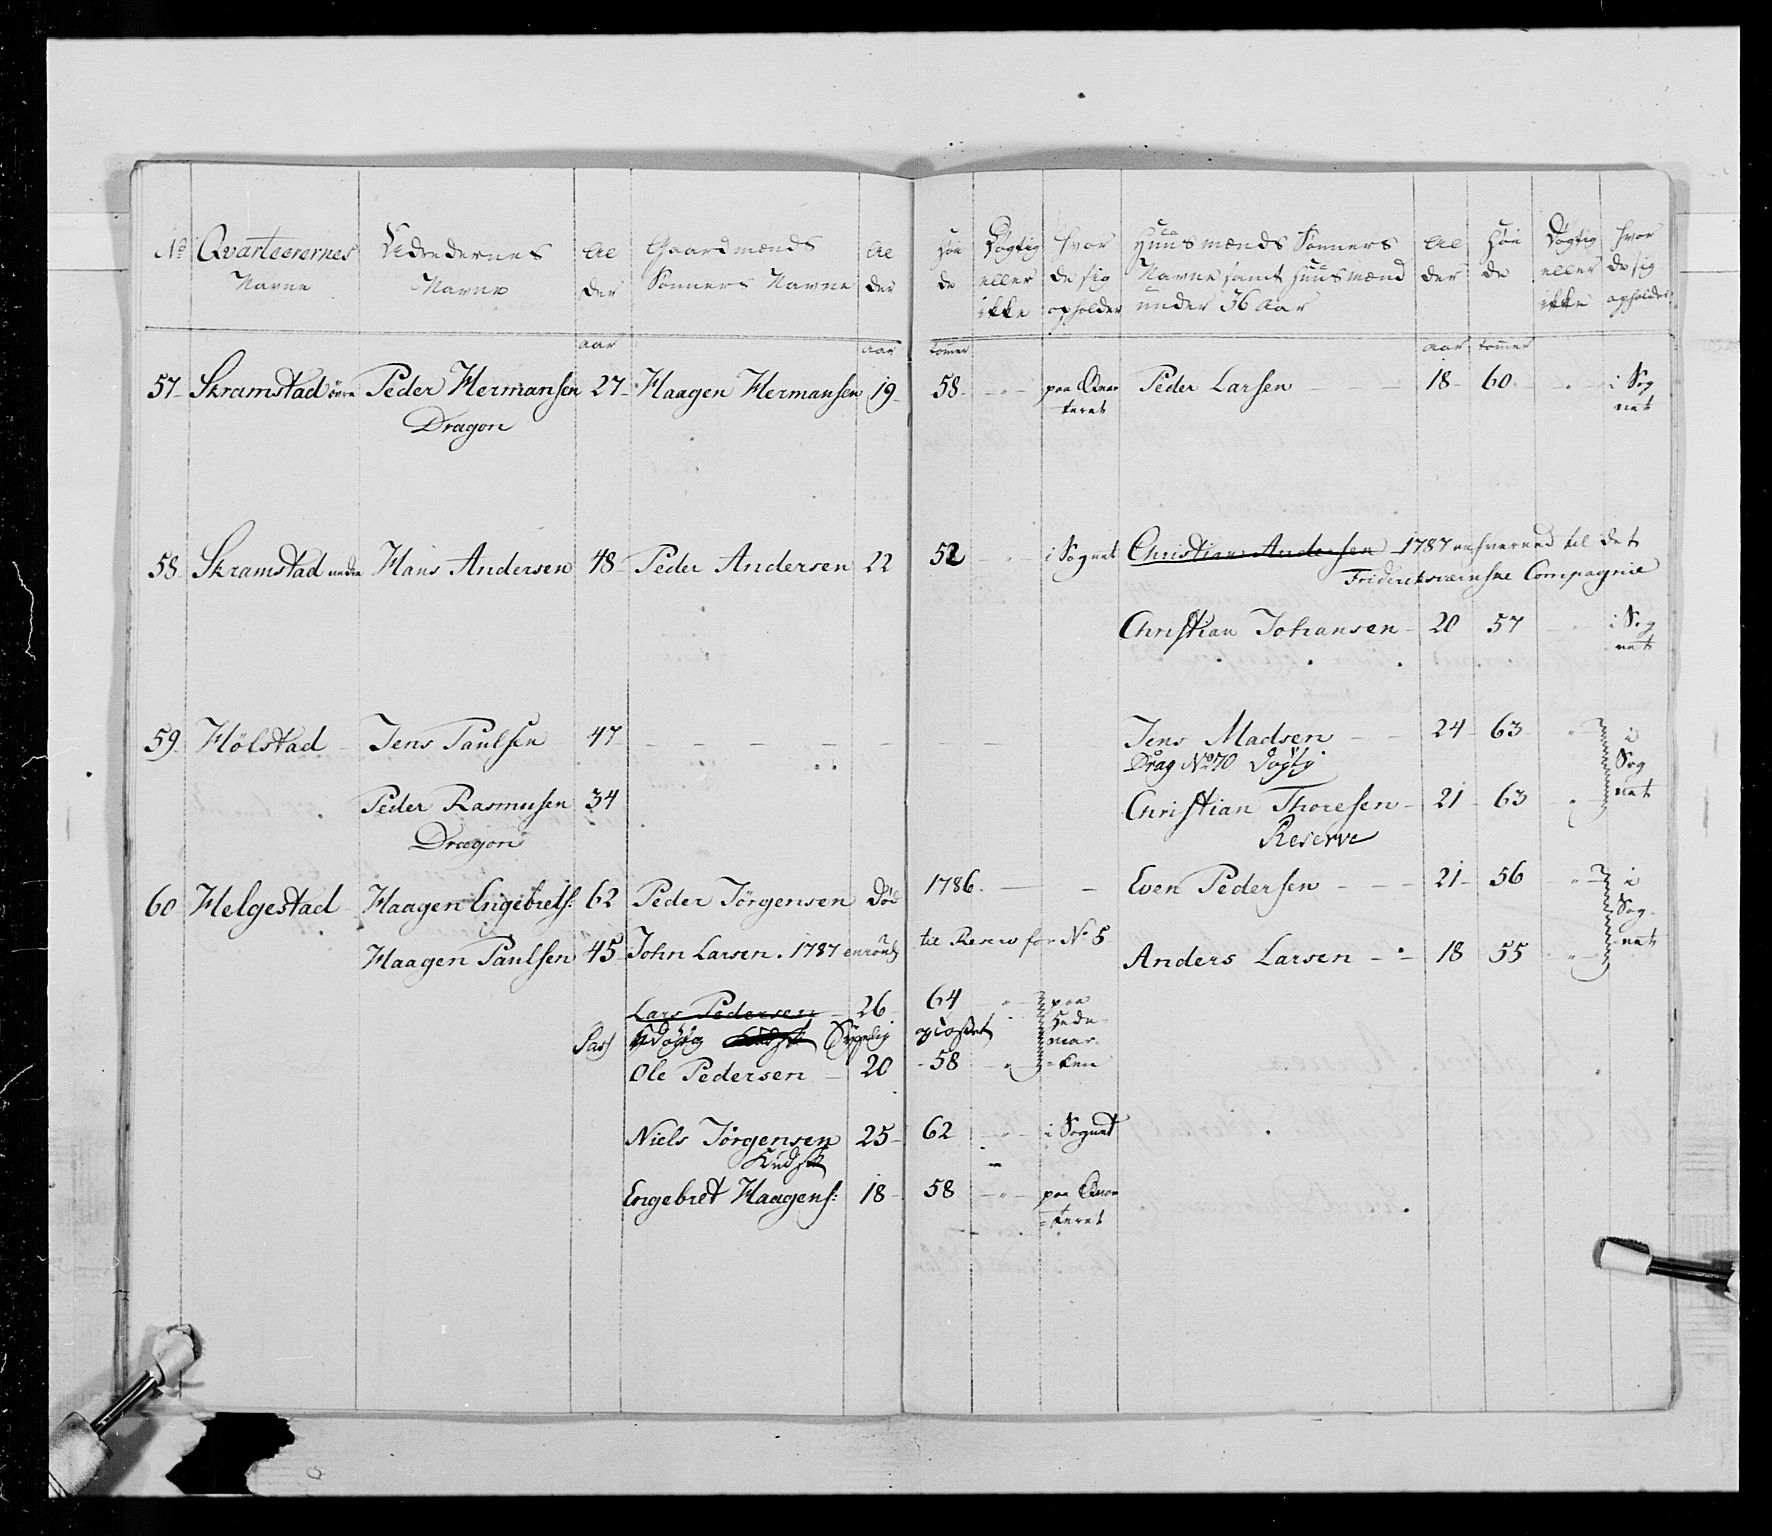 No Qvarteerernes Navne | Beboernes Navne | Alder | Gaardmænds Sønners Navne | Alder | Høide | Døgtig eller ikke | hvor de sig opholder | Huusmænds Sønners Navne samt Huusmænd under 36 Aar | Alder | Høide | Døgtig eller ikke | hvor de sig opholder
aar | aar | tommer | aar | tommer
57 Skramstad øvre Peder Hermansen 27 Haagen Hermansen 19 58 " paa Qvar Peder Larsen 18 60 " i Sog
Dragon teret net
58 Skramstad nedre Hans Andersen 48 Peder Andersen 22 52 " i Sognet Christian Andersen 1787 til det
Friderichsværnske Compagnie
Christian Johansen 20 57 " i Sog
net
59 Hölstad Jens Paulsen 47 Jens Madsen 24 63 " i
Drag No 70 Døgtig Sog
Peder Rasmusen 34 Christian Thoresen 21 63 " net
Dragon Reserve
60 Helgestad Haagen Engibrets: 62 Peder Jörgensen Död 1786. Even Pedersen 21 56 " i
Sog
Haagen Paulsen 45 John Larsen. 1787 til Reserv for No 5 Anders Larsen 18 55 " net
Lars Pedersen 26 64 " paa
Pas Udögtig Sygelig Hede
mar
Ole Pedersen 20 58 " ken
Niels Jörgensen 25 62 " i Sognet
Kudsk
Engebret Haagens: 18 58 " paa Qvar
teret